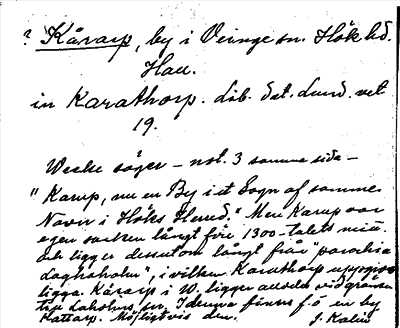 ? Kårarp, by i Veinge sn. Höks hd.
Hall.
in Karathorp. Lib. dat. Lund. vet.
19.
Weeke säger – not. 3 samma sida –
"Karup, nu en By i et Sogn af samme
Navn i Höks Herred." Men Karup var
egen socken långt före 1300-talets
och ligger dessutom långt från "parochia
Lagaholm", i vilken Karathorp uppgives
ligga. Kårarp i V. ligger alldeles vid gränsen
till Laholms sn. I denna finnes f.ö. en by
Kattarp. Möjligtvis den. J. Kalén